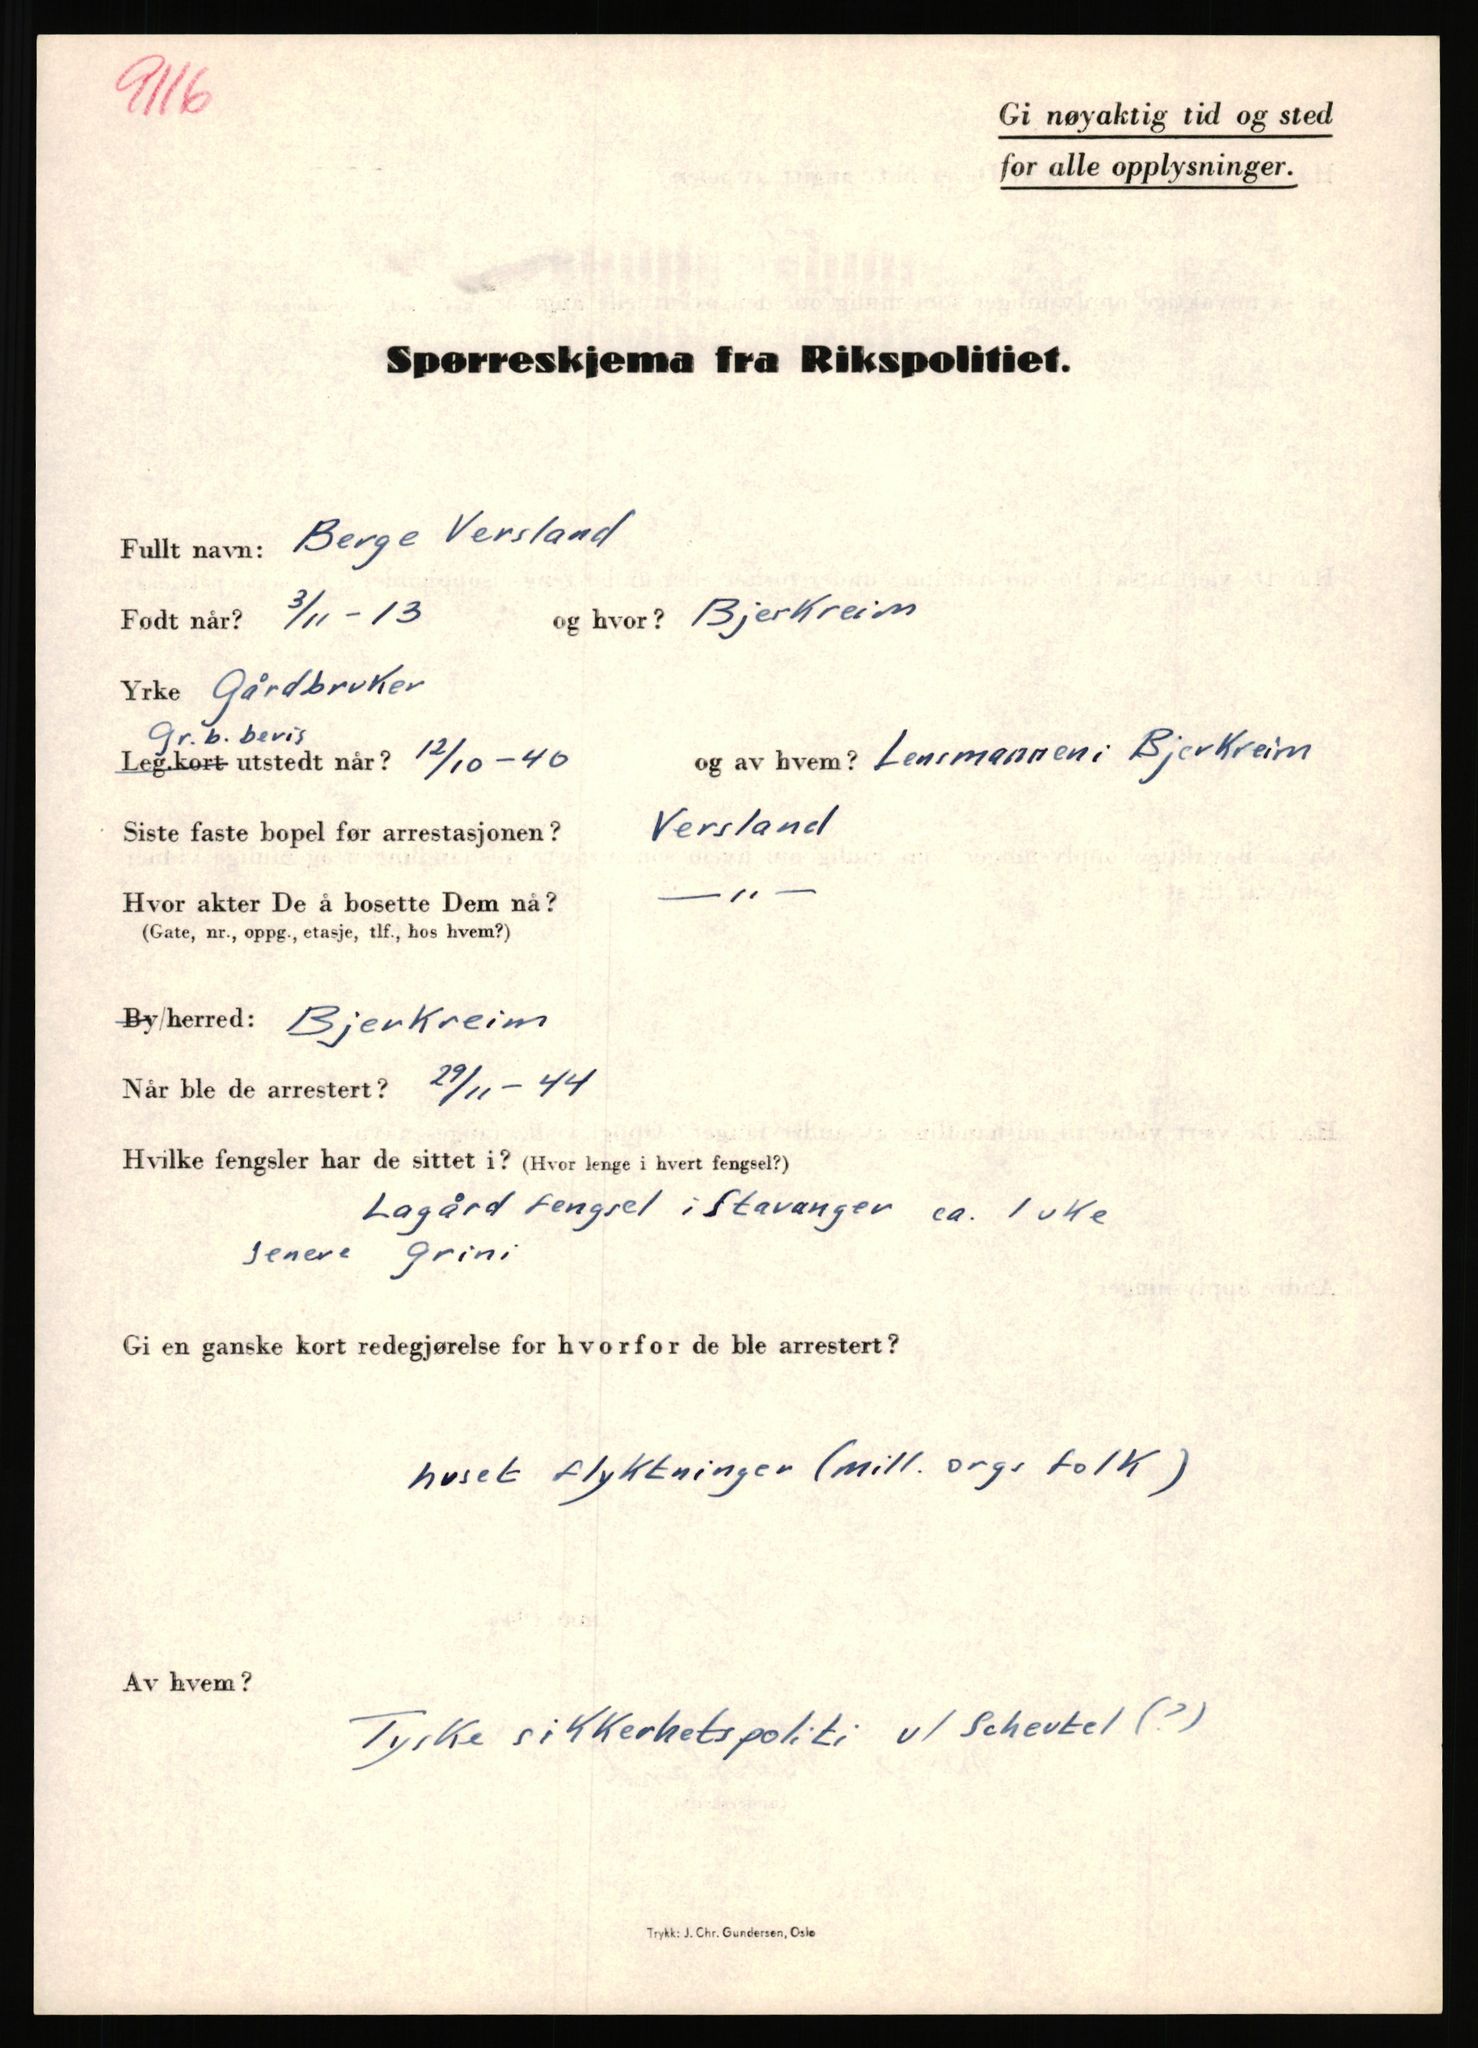 9116
Gi nøyaktig tid og sted
for alle opplysninger.
Spørreskjema fra Rikspolitiet.
Fullt navn: Berge Versland
Født når? 3/11 - 13 og hvor? Bjerkreim
Yrke Gårdbruker
Gr. b. bevis
Leg.kort utstedt når? 12/10 - 40 og av hvem? Lensmannen i Bjerkreim
Siste faste bopel før arrestasjonen? Versland
Hvor akter De å bosette Dem nå? — " —
(Gate, nr., oppg., etasje, tlf., hos hvem?)
By/herred: Bjerkreim
Når ble de arrestert? 29/11 - 44
Hvilke fengsler har de sittet i? (Hvor lenge i hvert fengsel?)
Lagård fengsel i Stavanger ca. 1 uke
senere Grini
Gi en ganske kort redegjørelse for hvorfor de ble arrestert?
huset flyktninger (mill. orgs folk)
Av hvem?
Tyske sikkerhetspoliti v/ Scheutel (?)
Trykk: J. Chr. Gundersen, Oslo